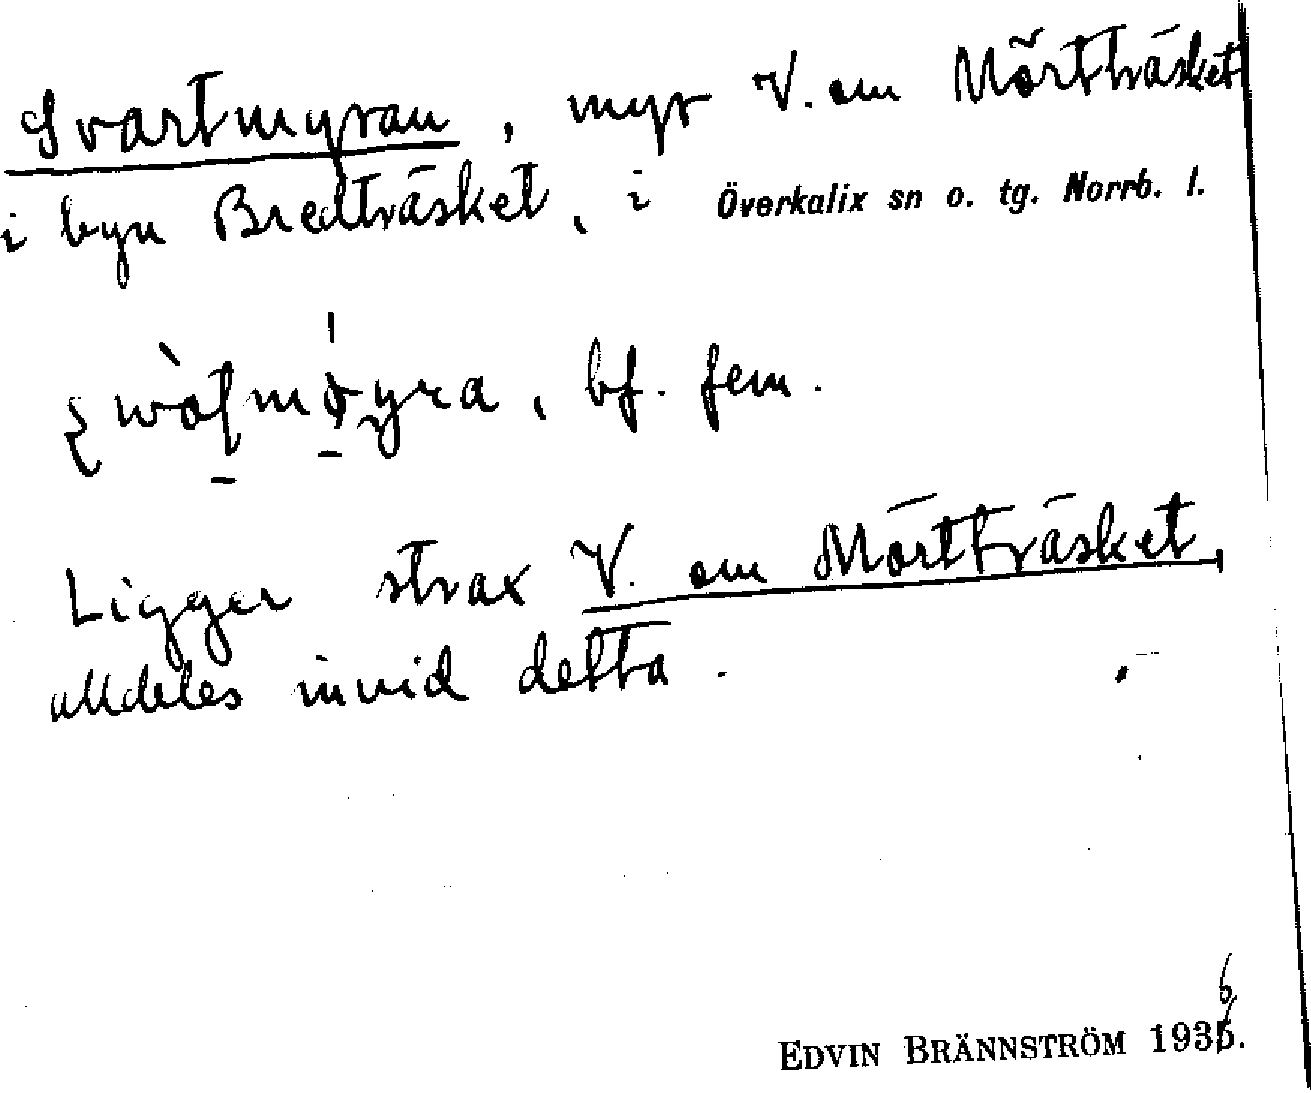 Svartmyran, myr V. om Mörtträsket
i byn Bredträsket, i Överkalix sn o. tg. Norrb. l.
bf. fem.
Ligger strax V. om Mörtträsket,
alldeles invid detta.
6
EDVIN BRÄNNSTRÖM 1935.